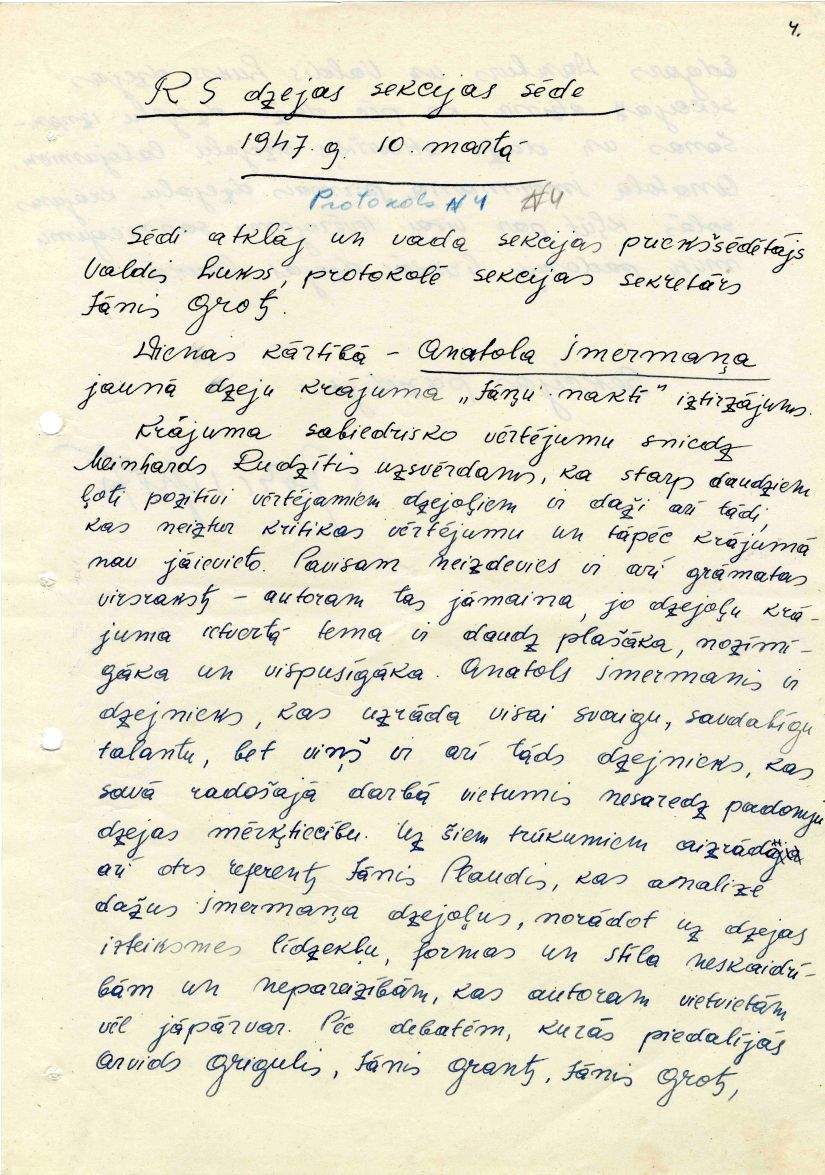 4.
RS dzejas sekcijas sēde
1947. g. 10. martā
Protokols N 4 N4
Sēdi atklāj un vada sekcijas priekšsēdētājs
Valdis Lukss, protokolē sekcijas sekretārs
Jānis Grots.
Dienas kārtībā – Anatola Imermaņa
jaunā dzeju krājuma „Jāņu naktī" iztirzājums.
Krājuma sabiedrisko vērtējumu sniedz
Meinhards Rudzītis uzsvērdams, ka starp daudziem
ļoti pozitīvi vērtējamiem dzejoļiem ir daži arī tādi,
kas neiztur kritikas vērtējumu un tāpēc krājumā
nav jāievieto. Pavisam neizdevies ir arī grāmatas
virsraksts – autoram tas jāmaina, jo dzejoļu krā-
juma ietvertā tema ir daudz plašāka, nozīmī-
gāka un vispusīgāka. Anatols Imermanis ir
dzejnieks, kas uzrāda visai svaigu, savdabīgu
talantu, bet viņš ir arī tāds dzejnieks, kas
savā radošajā darbā vietumis nesaredz padomju
dzejas mērķtiecību. Uz šiem trūkumiem aizrāda
arī otrs referents Jānis Plaudis, kas analizē
dažus Imermaņa dzejoļus, norādot uz dzejas
izteiksmes līdzekļu, formas un stila neskaidrī-
bām un nepareizībām, kas autoram vietvietām
vēl jāpārvar. Pēc debatēm, kurās piedalījās
Arvids Grigulis, Jānis Grants, Jānis Grots,